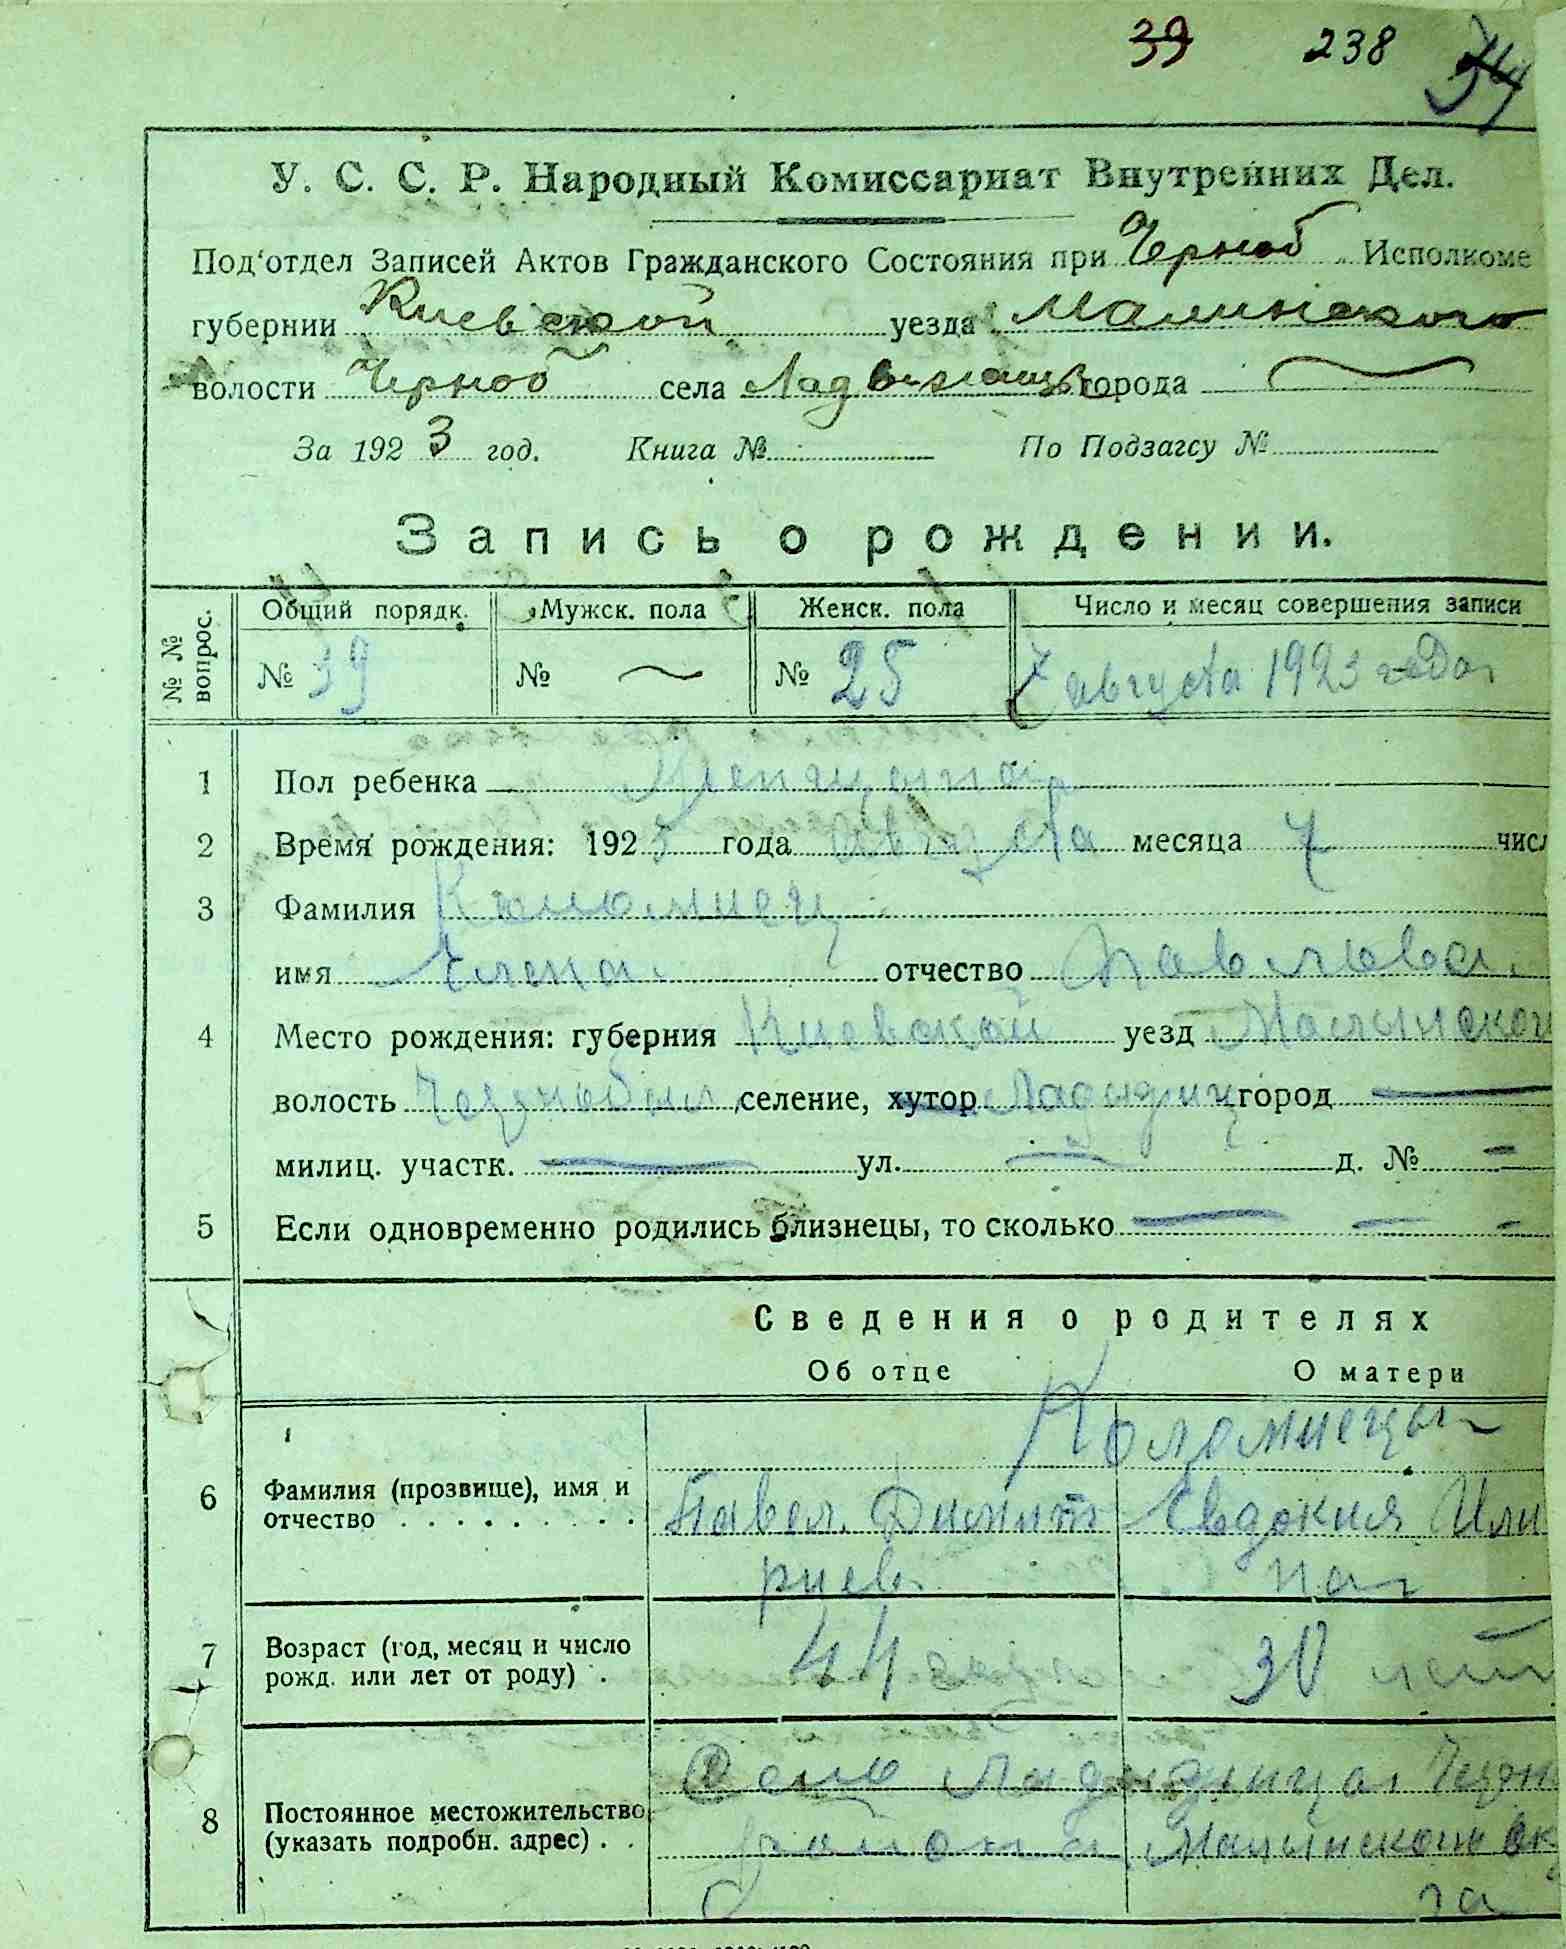 39 238
У. С. С. Р. Народный Комиссариат Внутренних Дел.
Под'отдел Записей Актов Гражданского Состояния при Черноб. Исполкоме
губернии Киевской уезда Малинского
волости Черноб села города
За 1923 год. Книга № По Подзагсу №
Запись о рождении.
№ № вопрос.
Общий порядк. Мужск. пола Женск. пола Число и месяц совершения записи
№ 39 № № 25 7 августа 1923 года
1 Пол ребенка Женщина
2 Время рождения: 1923 года августа месяца 7 числ
3 Фамилия Коломиец
имя Елена отчество Павлова
4 Место рождения: губерния Киевской уезд Малынског
волость селение, хутор город
милиц. участк. ул. д. №
5 Если одновременно родились близнецы, то сколько
Сведения о родителях
Об отце О матери
Коломиецы
6 Фамилия (прозвище), имя и
отчество . . . . . . . . .
Павел Димит Евдокия Или
риев на
7 Возраст (год, месяц и число
рожд. или лет от роду) .
44 30 лет
8 Постоянное местожительство
(указать подробн. адрес) . .
Село Черн
района Малынского ок
га